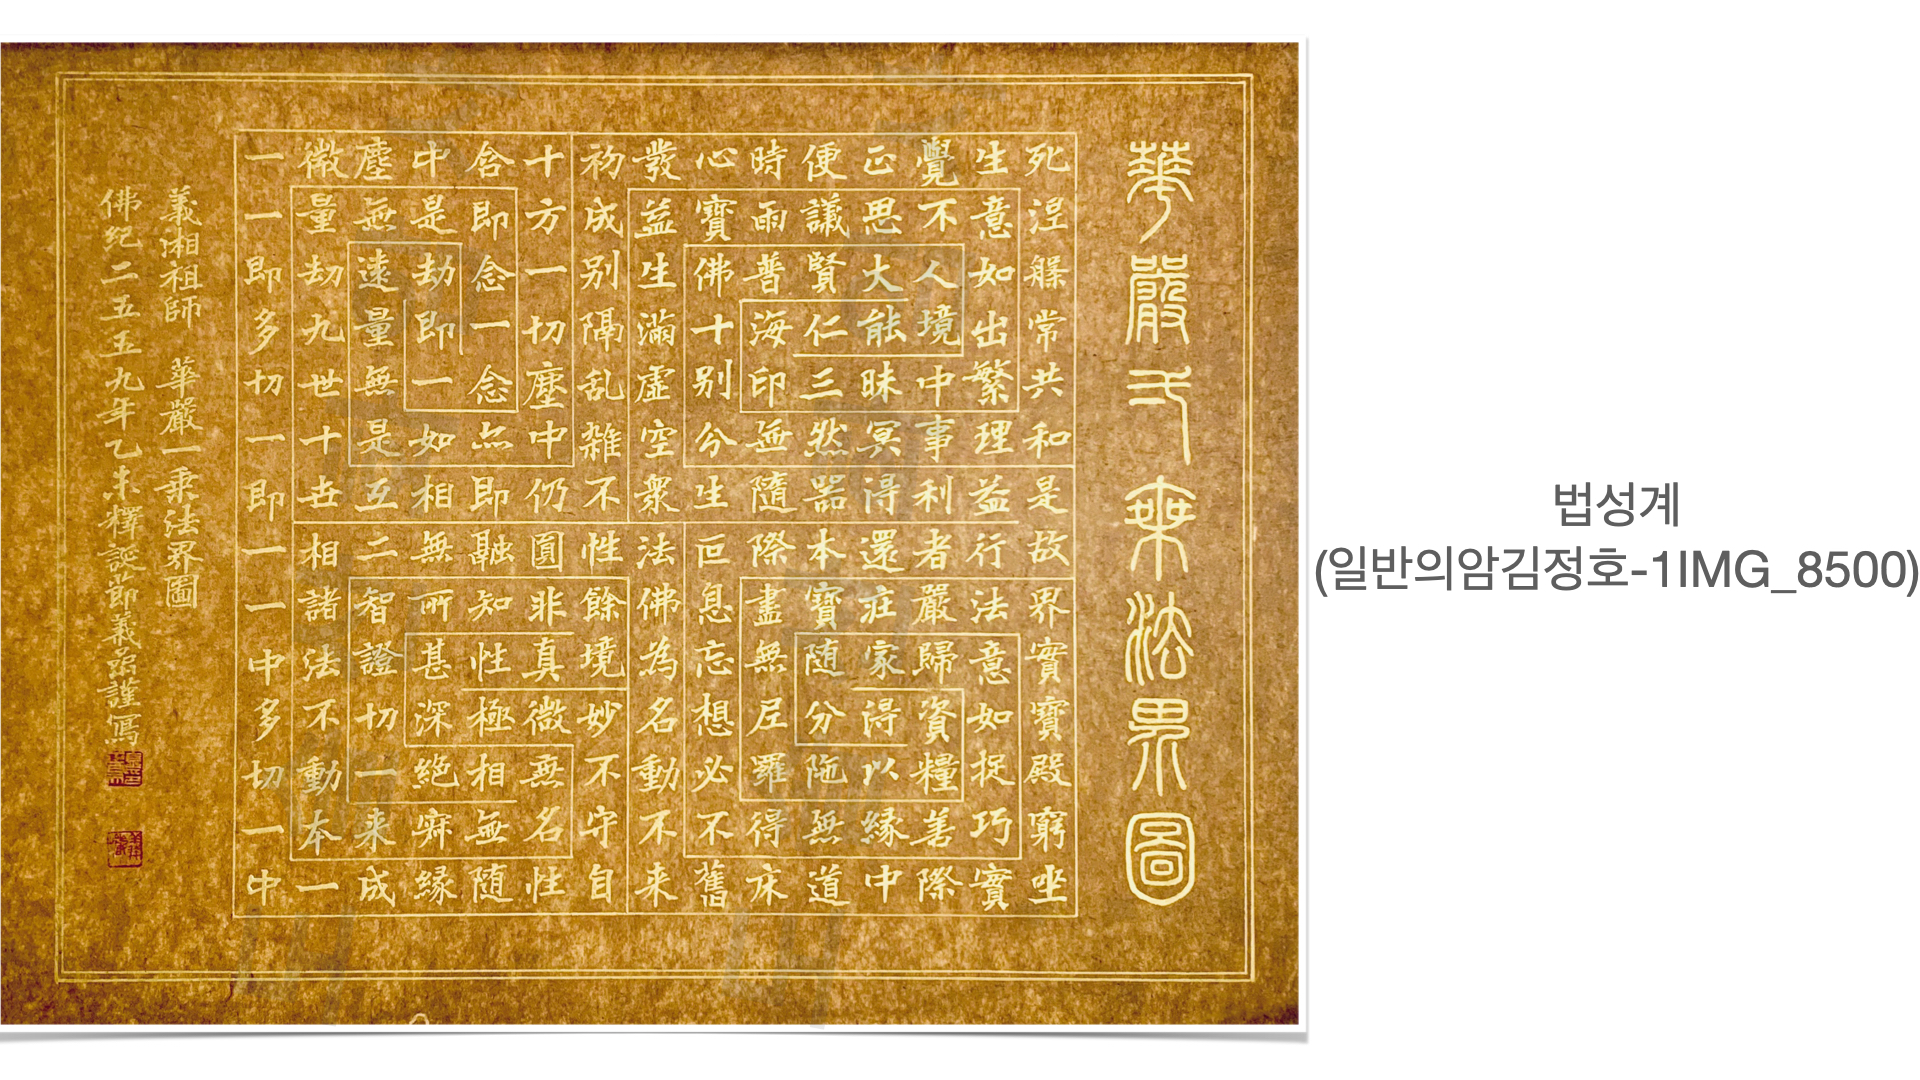 華嚴弌乘法界圖
死涅槃常共和是故界實寶殿窮坐
生意如出繁理益行法意如捉巧實
覺不人境中事利者嚴歸資糧善際
正思大能昧冥得還莊家得以縁中
便議賢仁三然器本寶随分陁無道
時雨普海印無隨際盡無尼羅得床
心寶佛十別分生叵息忘想必不舊
發益生滿虛空眾法佛為名動不来
初成別隔乱雜不性餘境妙不守自
十方一切塵中仍圓非真微無名性
含即念一念亦即融知性極相無随
中是劫即一如相無所甚深絶寂縁
塵無遠量無是互二智證切一来成
微量劫九世十世相諸法不動本一
一一即多切一即一一中多切一中
義湘祖師 華嚴一乘法界圖
佛紀二五五九年乙未釋 節義 謹寫
법성계
(일반의암김정호-1IMG_8500)